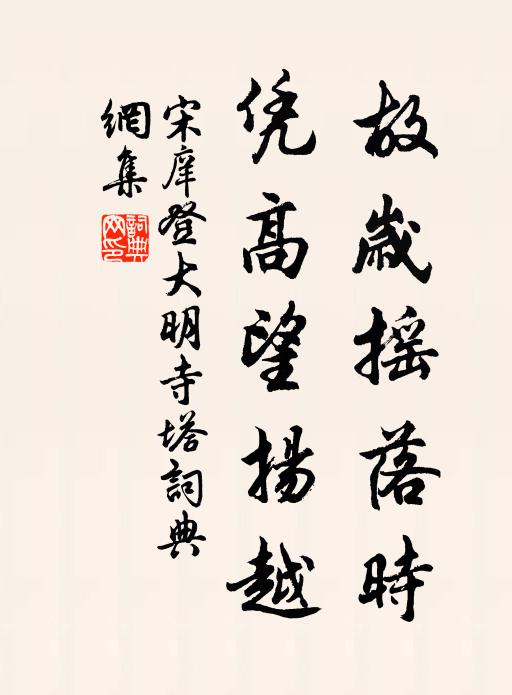 故歲摇落時
凭高望揚越
宋庠登大明寺塔詞典
網集
詞典網印